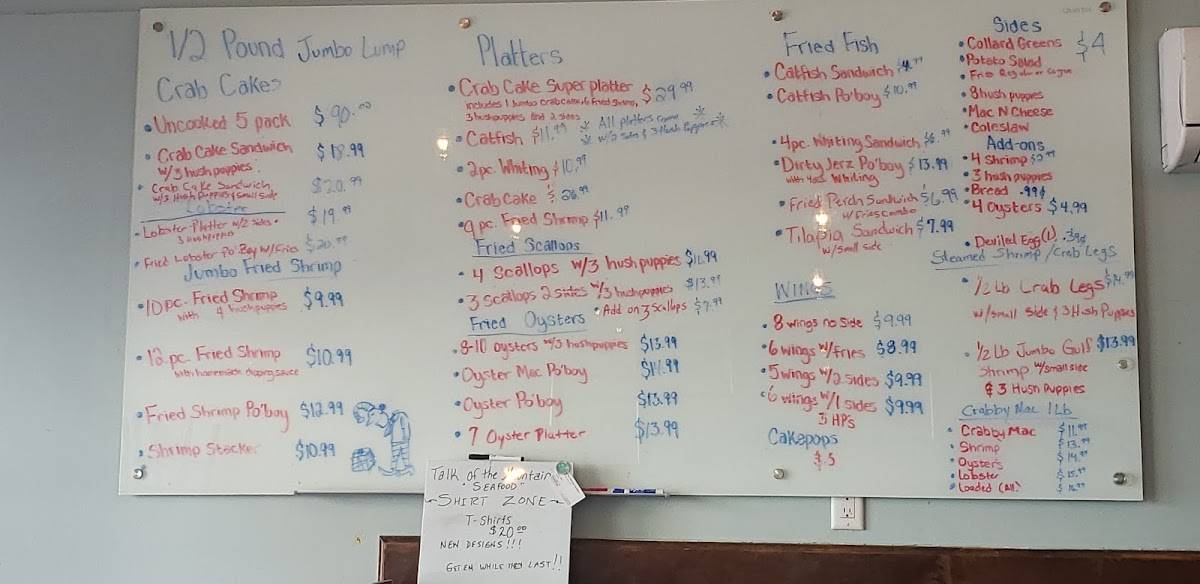 1/2 Pound Jumbo Lump
Crab Cakes
• Uncooked 5 pack $90.00
• Crab Cake Sandwich $18.99
w/3 hush puppies
• Crab Cake Sandwich $20.99
w/3 Hush Puppies & Small Side
Lobster
• Lobster Platter w/2 sides • $19.99
3 Hushpuppies
• Fried Lobster Po'Boy w/Fries $20.99
Jumbo Fried Shrimp
• 10 pc. Fried Shrimp $9.99
with 4 hushpuppies
• 12 pc. Fried Shrimp $10.99
with homemade dipping sauce
• Fried Shrimp Po'boy $12.99
• Shrimp Stacker $10.99
Platters
• Crab Cake Super platter $29.99
includes 1 Jumbo crabcake, 6 fried shrimp,
3 hushpuppies and 2 sides
• Catfish $11.99 * All platters come *
* w/2 sides & 3 Hush Puppies *
• 2pc. Whiting $10.99
• Crab Cake $26.99
• 9 pc. Fried Shrimp $11.99
Fried Scallops
• 4 Scallops w/3 hushpuppies $11.99
• 3 Scallops 2 sides w/3 hushpuppies $13.99
• Add on 3 Scallops $7.99
Fried Oysters
• 8-10 oysters w/3 hushpuppies $13.99
• Oyster Mac Po'boy $14.99
• Oyster Po'boy $13.99
• 7 Oyster Platter $13.99
Fried Fish
• Catfish Sandwich
• Catfish Po'boy $10.99
• 4pc. Whiting Sandwich $6.99
• Dirty Jerz Po'boy $13.99
with Whiting
• Fried Perch Sandwich $6.99
w/Fries combo
• Tilapia Sandwich $7.99
w/Small side
WINGS
• 8 wings no side $9.99
• 6 wings w/fries $8.99
• 5 wings w/2 sides $9.99
• 6 wings w/1 sides $9.99
3 HPs
Cakepops
$3
Sides
• Collard Greens $4
• Potato Salad
• Fries Regular or Cajun
• 8 hush puppies
• Mac N Cheese
• Coleslaw
Add-ons
• 4 Shrimp
• 3 hush puppies
• Bread .99¢
• 4 Oysters $4.99
• Deviled Egg(1)
Steamed Shrimp/Crab Legs
• 1/2 Lb Crab Legs $14.99
w/small side & 3 Hush Puppies
• 1/2 Lb Jumbo Gulf $13.99
Shrimp w/small side
& 3 Hush Puppies
Crabby Mac 1 Lb
• Crabby Mac $11.99
• Shrimp $13.99
• Oysters $14.99
• Lobster $15.99
• Loaded (All)
Talk of the Mountain
"SEAFOOD"
~SHIRT ZONE~
T-Shirts
$20.00
NEW DESIGNS!!!
GET EM WHILE THEY LAST!!